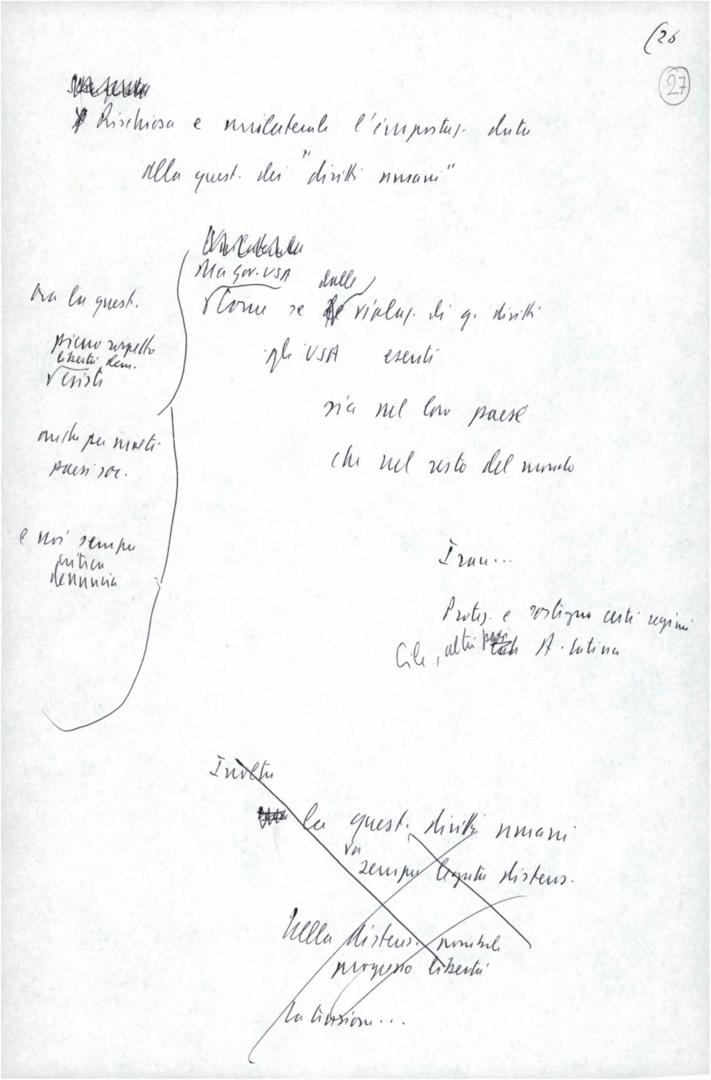 (26
27
Rischiosa e unilaterale l'impostaz. data
alla quest. dei "diritti umani"
Ma gov. USA
dalle
Come se violaz. di q. diritti
gli USA esenti
sia nel loro paese
che nel resto del mondo
ora la quest.
pieno rispetto
libertà dem.
esisti
anche per molti
paesi soc.
e noi sempre
critica
denuncia
Iran...
Protez. e sostegno certi regimi
Cile, altri paesi A. latina
Inoltre
la quest. diritti umani
va
sempre legata distens.
Nella distens. possibile
progresso libertà